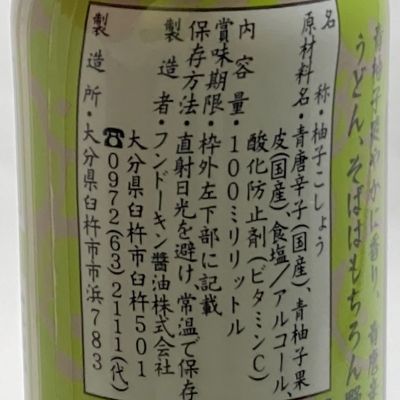 青柚子爽やかに香り、青唐辛
うどん、そばはもちろん
名称・柚子こしょう
原材料名・青唐辛子(国産)、青柚子果
皮(国産)、食塩/アルコール、
酸化防止剤(ビタミンC)
内容量・100ミリリットル
賞味期限・枠外左下部に記載
保存方法・直射日光を避け、常温で保存
製造者・フンドーキン醤油株式会社
大分県臼杵市臼杵501
☎0972(63)2111(代)
製造所・大分県臼杵市市浜783